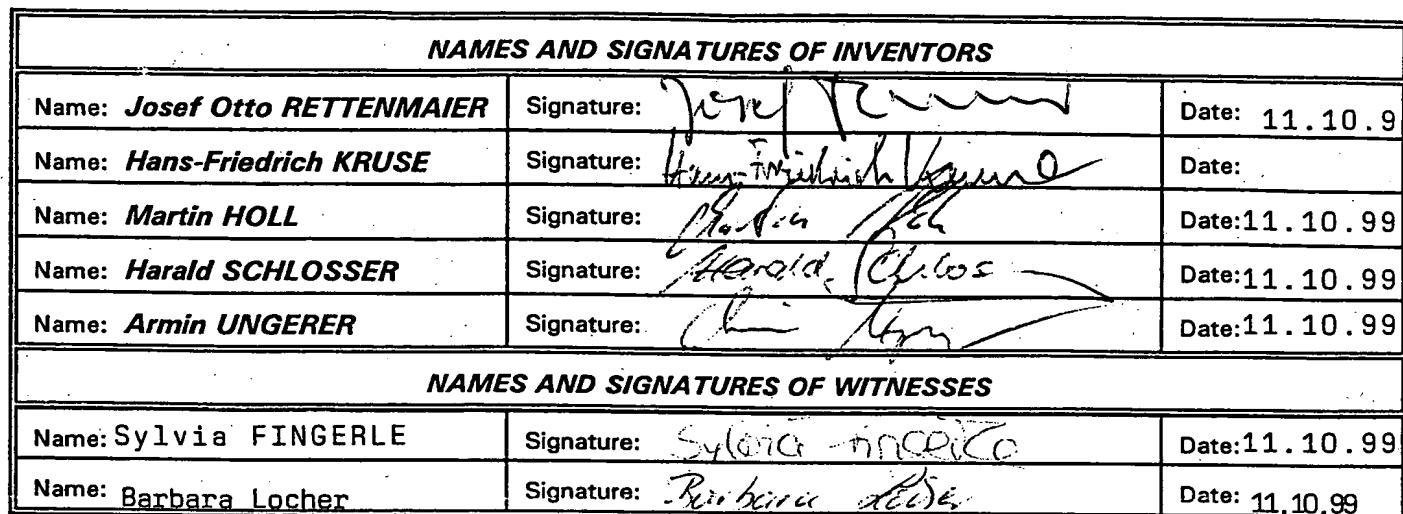 NAMES AND SIGNATURES OF INVENTORS
Name: Josef Otto RETTENMAIER Signature: Josef Date: 11.10.9
Name: Hans-Friedrich KRUSE Signature: Hans-Friedrich Kruse Date:
Name: Martin HOLL Signature: Martin Date:11.10.99
Name: Harald SCHLOSSER Signature: Harald Date:11.10.99
Name: Armin UNGERER Signature: Date:11.10.99
NAMES AND SIGNATURES OF WITNESSES
Name: Sylvia FINGERLE Signature: Sylvia Date:11.10.99
Name: Barbara Locher Signature: Barbara Date: 11.10.99